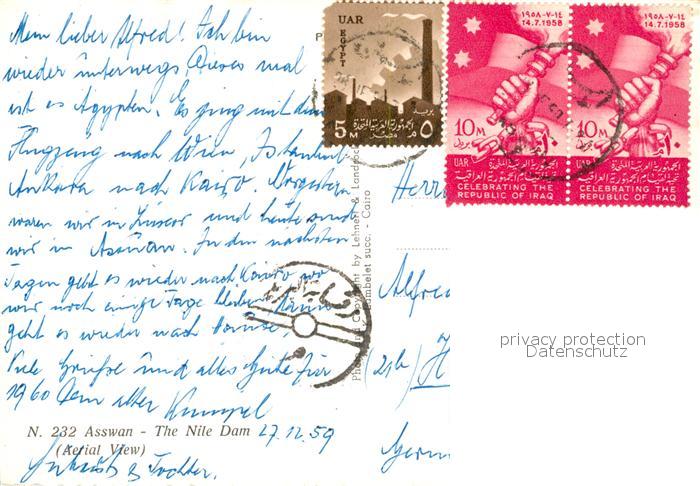 Mein lieber Alfred! Ich bin
wieder unterwegs, dieses mal
ist es Ägypten. Es ging mit dem
Flugzeug nach Wien, Istanbul
Ankara nach Kairo. Vorgestern
waren wir in Luxor und heute sind
wir in Assuan. In den nächsten
Tagen geht es wieder nach Kairo wo
wir noch einige Tage bleiben. Dann
geht es wieder nach Hause.
Viele Grüße und alles Gute für
1960 Dein alter
N. 232 Asswan - The Nile Dam 27.12.59
(Aerial View)
& Tochter.
P
Photo and Copyright by Lehnert & Landrock
Kambelet succ. - Cairo
UAR
EGYPT
بريد
الجمهورية العربية المتحدة
مصر
5 M
٥ م
١٤-٧-١٩٥٨
14.7.1958
10 M
١٠
UAR
الجمهورية العربية المتحدة
CELEBRATING THE
REPUBLIC OF IRAQ
١٤-٧-١٩٥٨
14.7.1958
10 M
١٠
UAR
الجمهورية العربية المتحدة
CELEBRATING THE
REPUBLIC OF IRAQ
Herr
Alfred
(21b)
Germ
privacy protection
Datenschutz